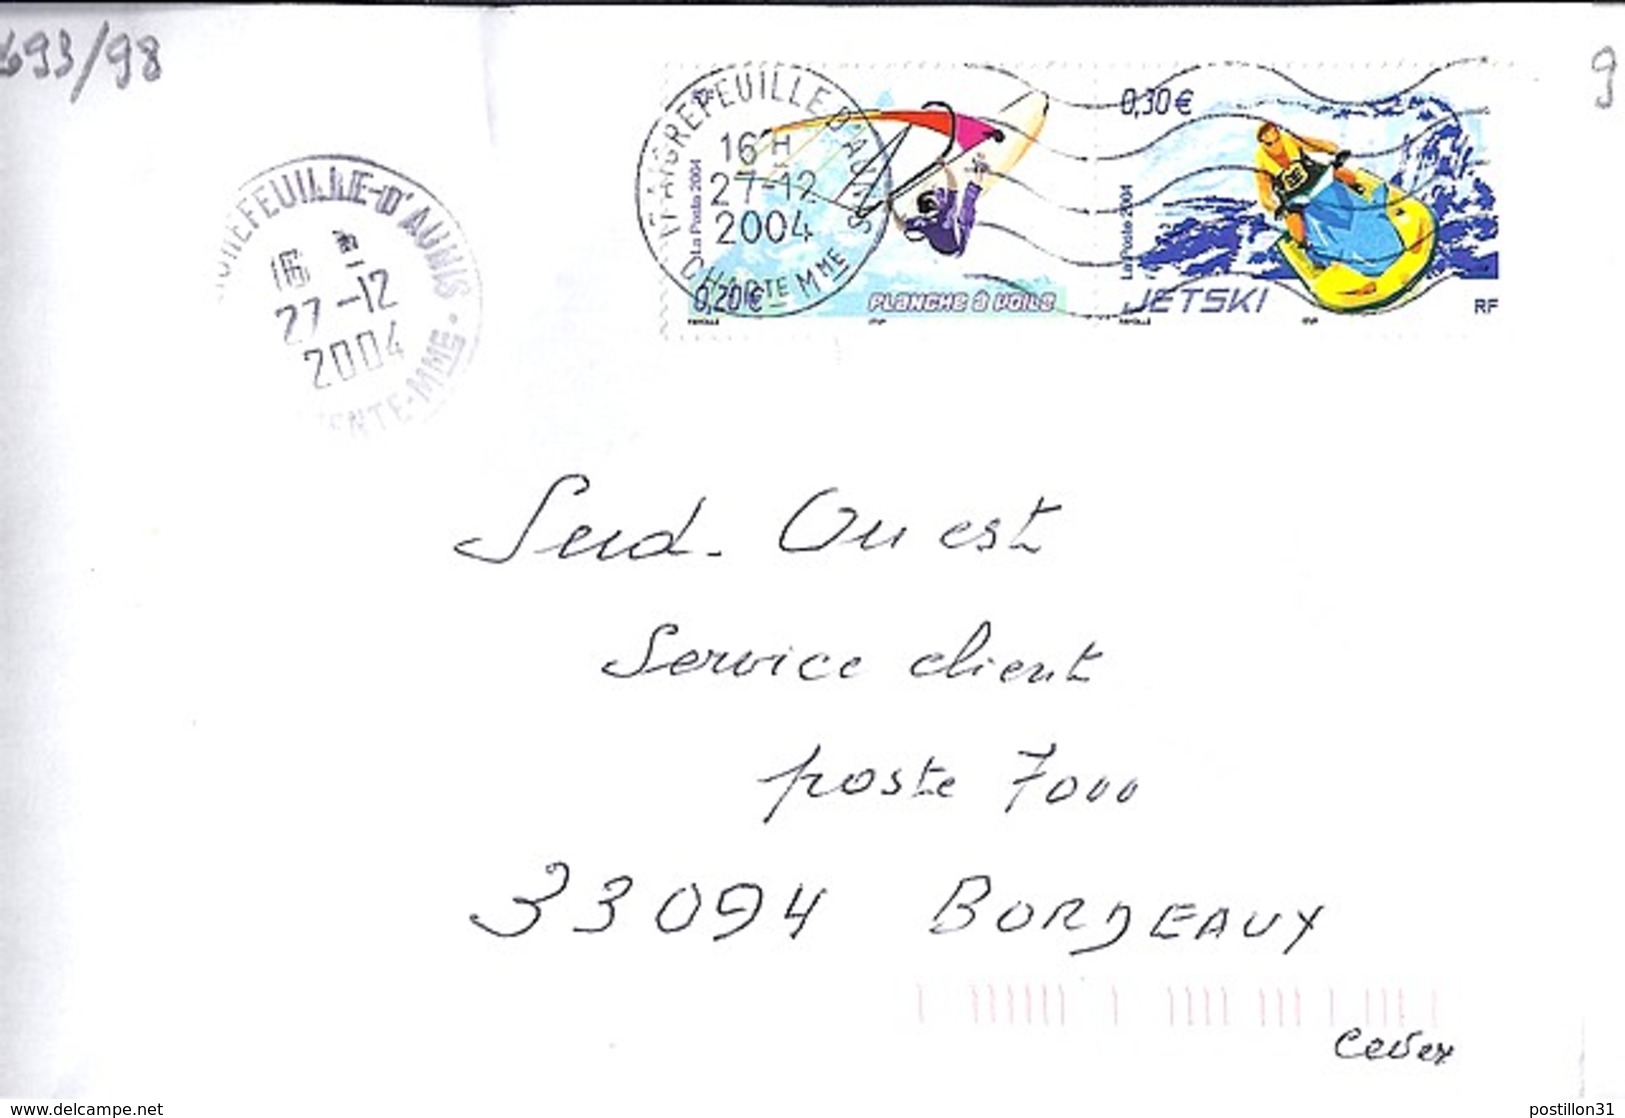 693/98
9
17 AIGREFEUILLE D'AUNIS
16 H
27-12
2004
CHARTE MME
La Poste 2004
0,20€
PLANCHE à VOILE
0,30€
La Poste 2004
JETSKI
RF
GREFEUILLE-D'AUNIS
16 H
27-12
2004
ENTE-MME
Sud-Ouest
Service client
poste 7000
33094 BORDEAUX
Cedex
www.delcampe.net
postillon31